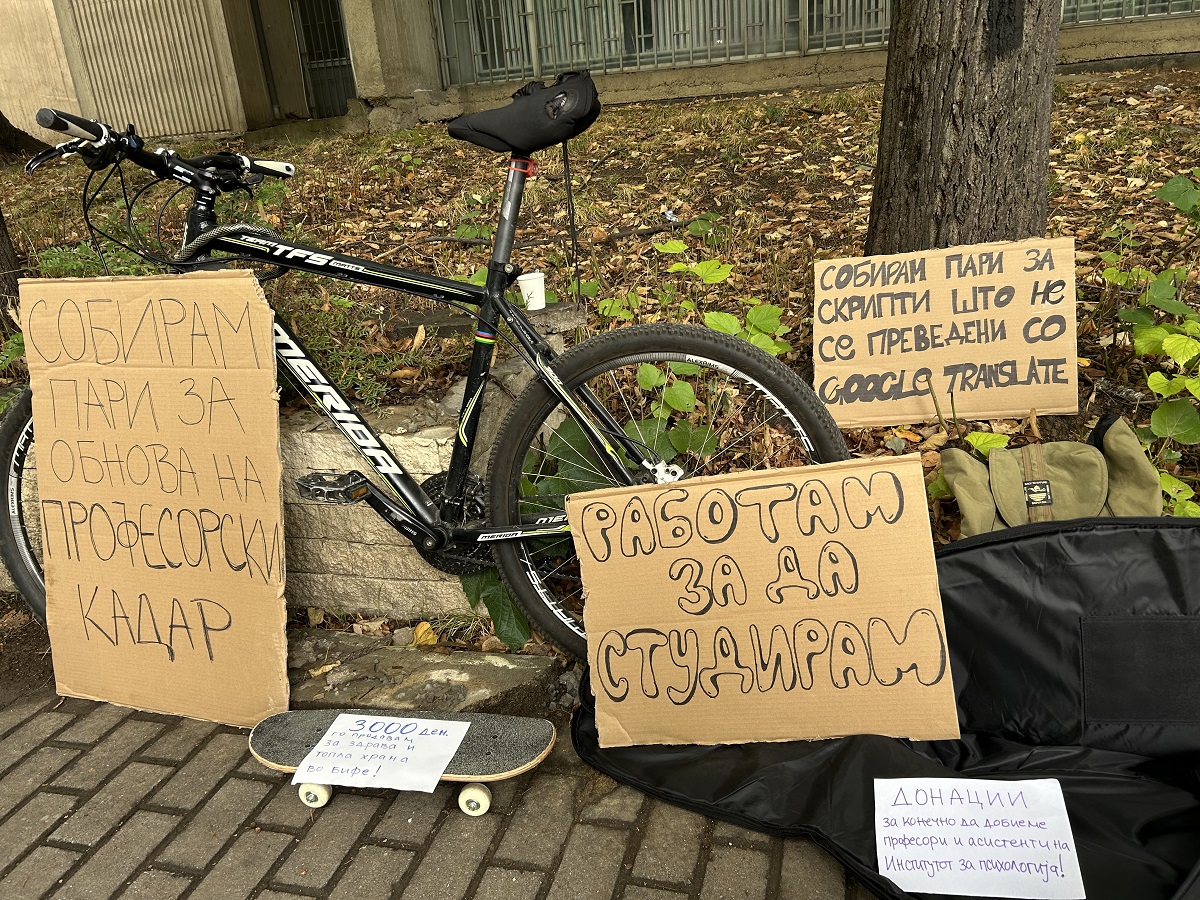 СОБИРАМ
ПАРИ ЗА
ОБНОВА НА
ПРОФЕСОРСКИ
КАДАР
TEAM TFS
MERIDA
MERIDA
ALEXRIMS
СОБИРАМ ПАРИ ЗА
СКРИПТИ ШТО НЕ
СЕ ПРЕВЕДЕНИ СО
GOOGLE TRANSLATE
РАБОТАМ
ЗА ДА
СТУДИРАМ
3000 ден.
го продавам
за здрава и
топла храна
во бифе!
ДОНАЦИИ
за конечно да добиеме
професори и асистенти на
Институтот за психологија!